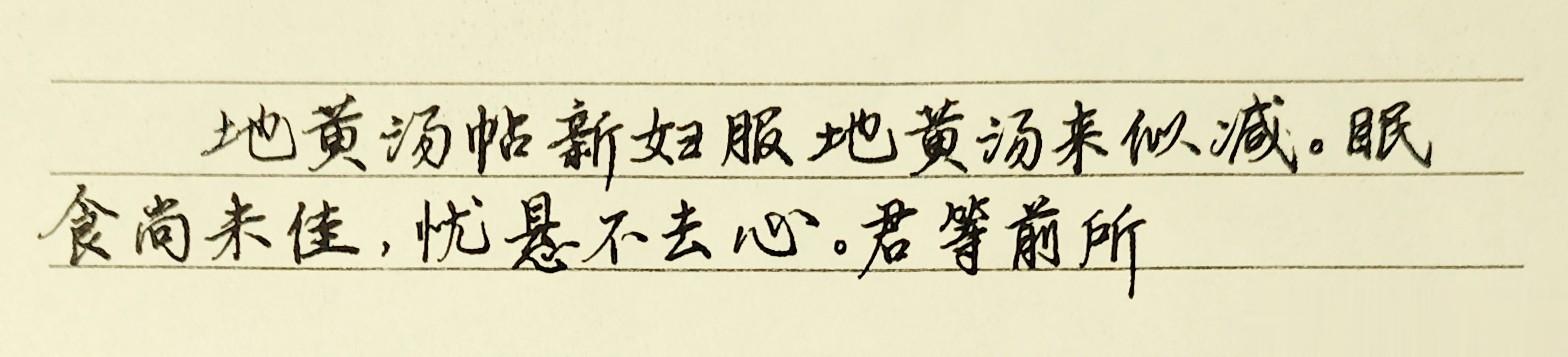 地黄汤帖新妇服地黄汤来似减。眠
食尚未佳,忧悬不去心。君等前所